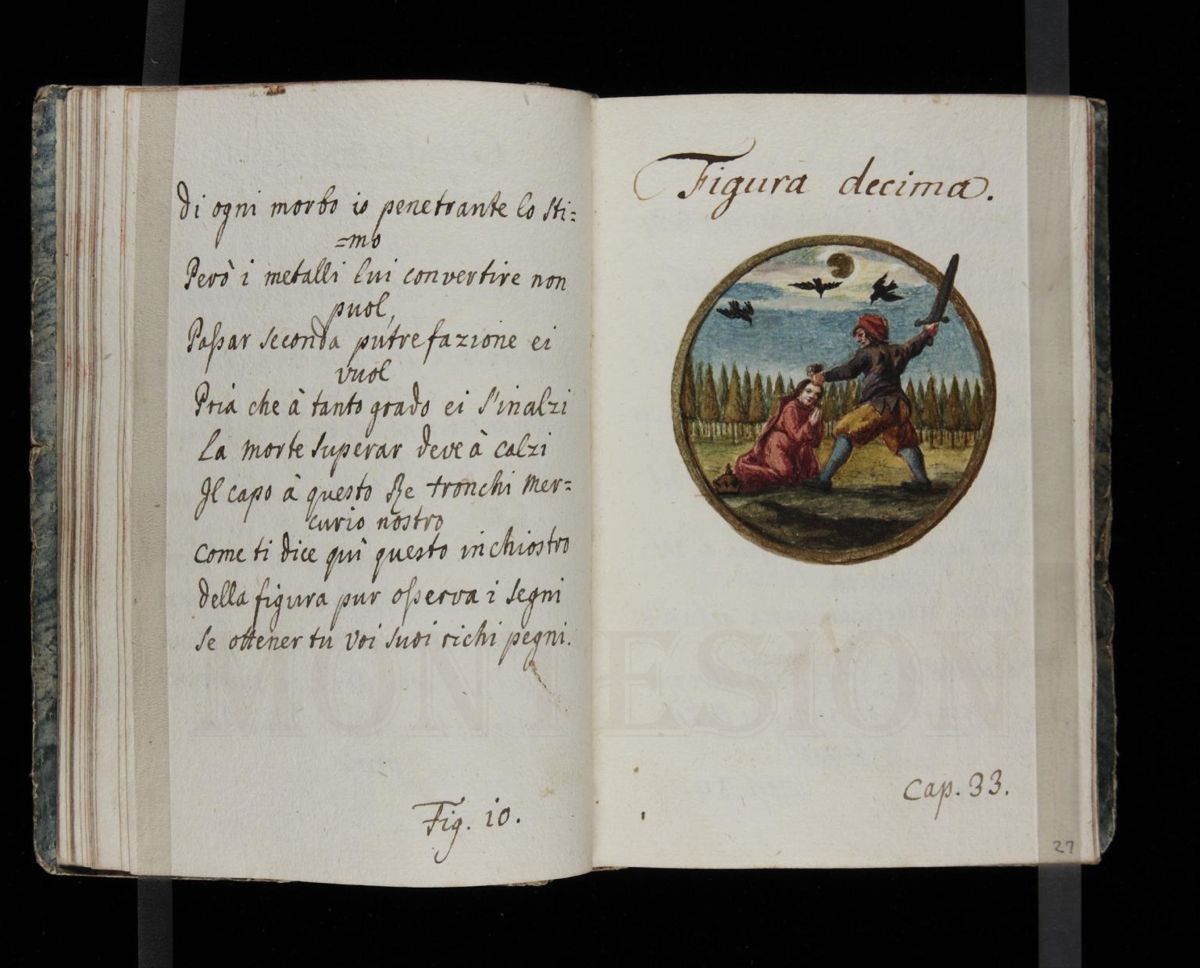 Di ogni morbo io penetrante lo sti=
=mo
Però i metalli lui convertire non
puol,
Paſsar seconda putrefazione ei
vuol
Pria che à tanto grado ei s'inalzi
La morte superar deve à calzi
Il capo à questo Re tronchi Mer=
curio nostro
Come ti dice quì questo inchiostro
della figura pur oſserva i segni
se ottener tu voi suoi richi pegni.
Fig. 10.
Figura decima.
Cap. 33.
27
MONTESION